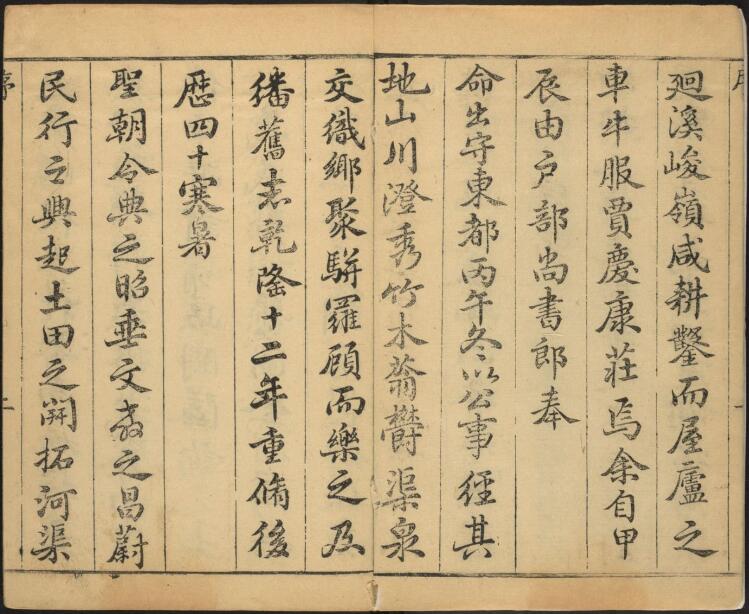 廻溪峻嶺咸耕鑿而屋廬之
車牛服賈慶康莊焉余自甲
辰由戶部尚書郎奉
命出守東都丙午冬以公事經其
地山川澄秀竹木蓊欝渠泉
交織鄉聚駢羅顧而樂之及
繙舊志乾隆十二年重脩後
歷四十寒暑
聖朝令典之昭垂文教之昌蔚
民行之興起土田之開拓河渠
序
二